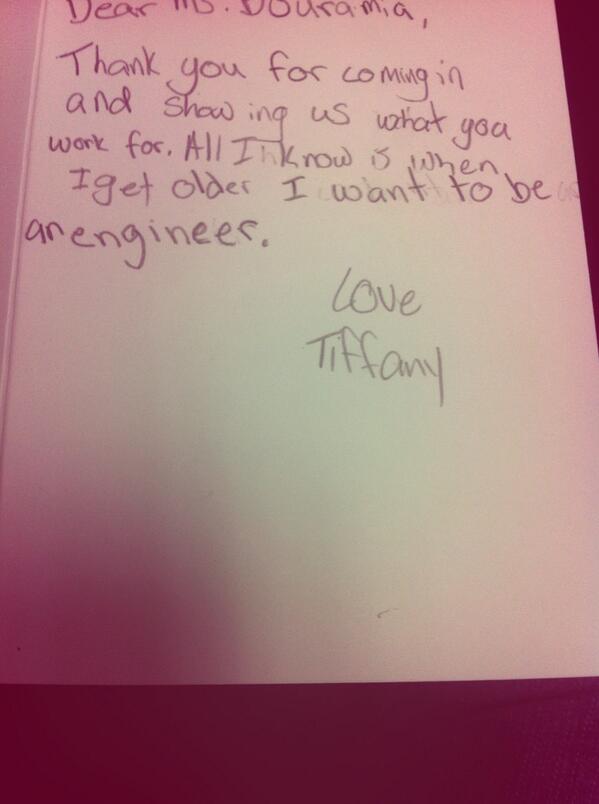 Dear Ms. Douramia,
Thank you for coming in
and showing us what you
work for. All I know is when
I get older I want to be
an engineer.
Love
Tiffany